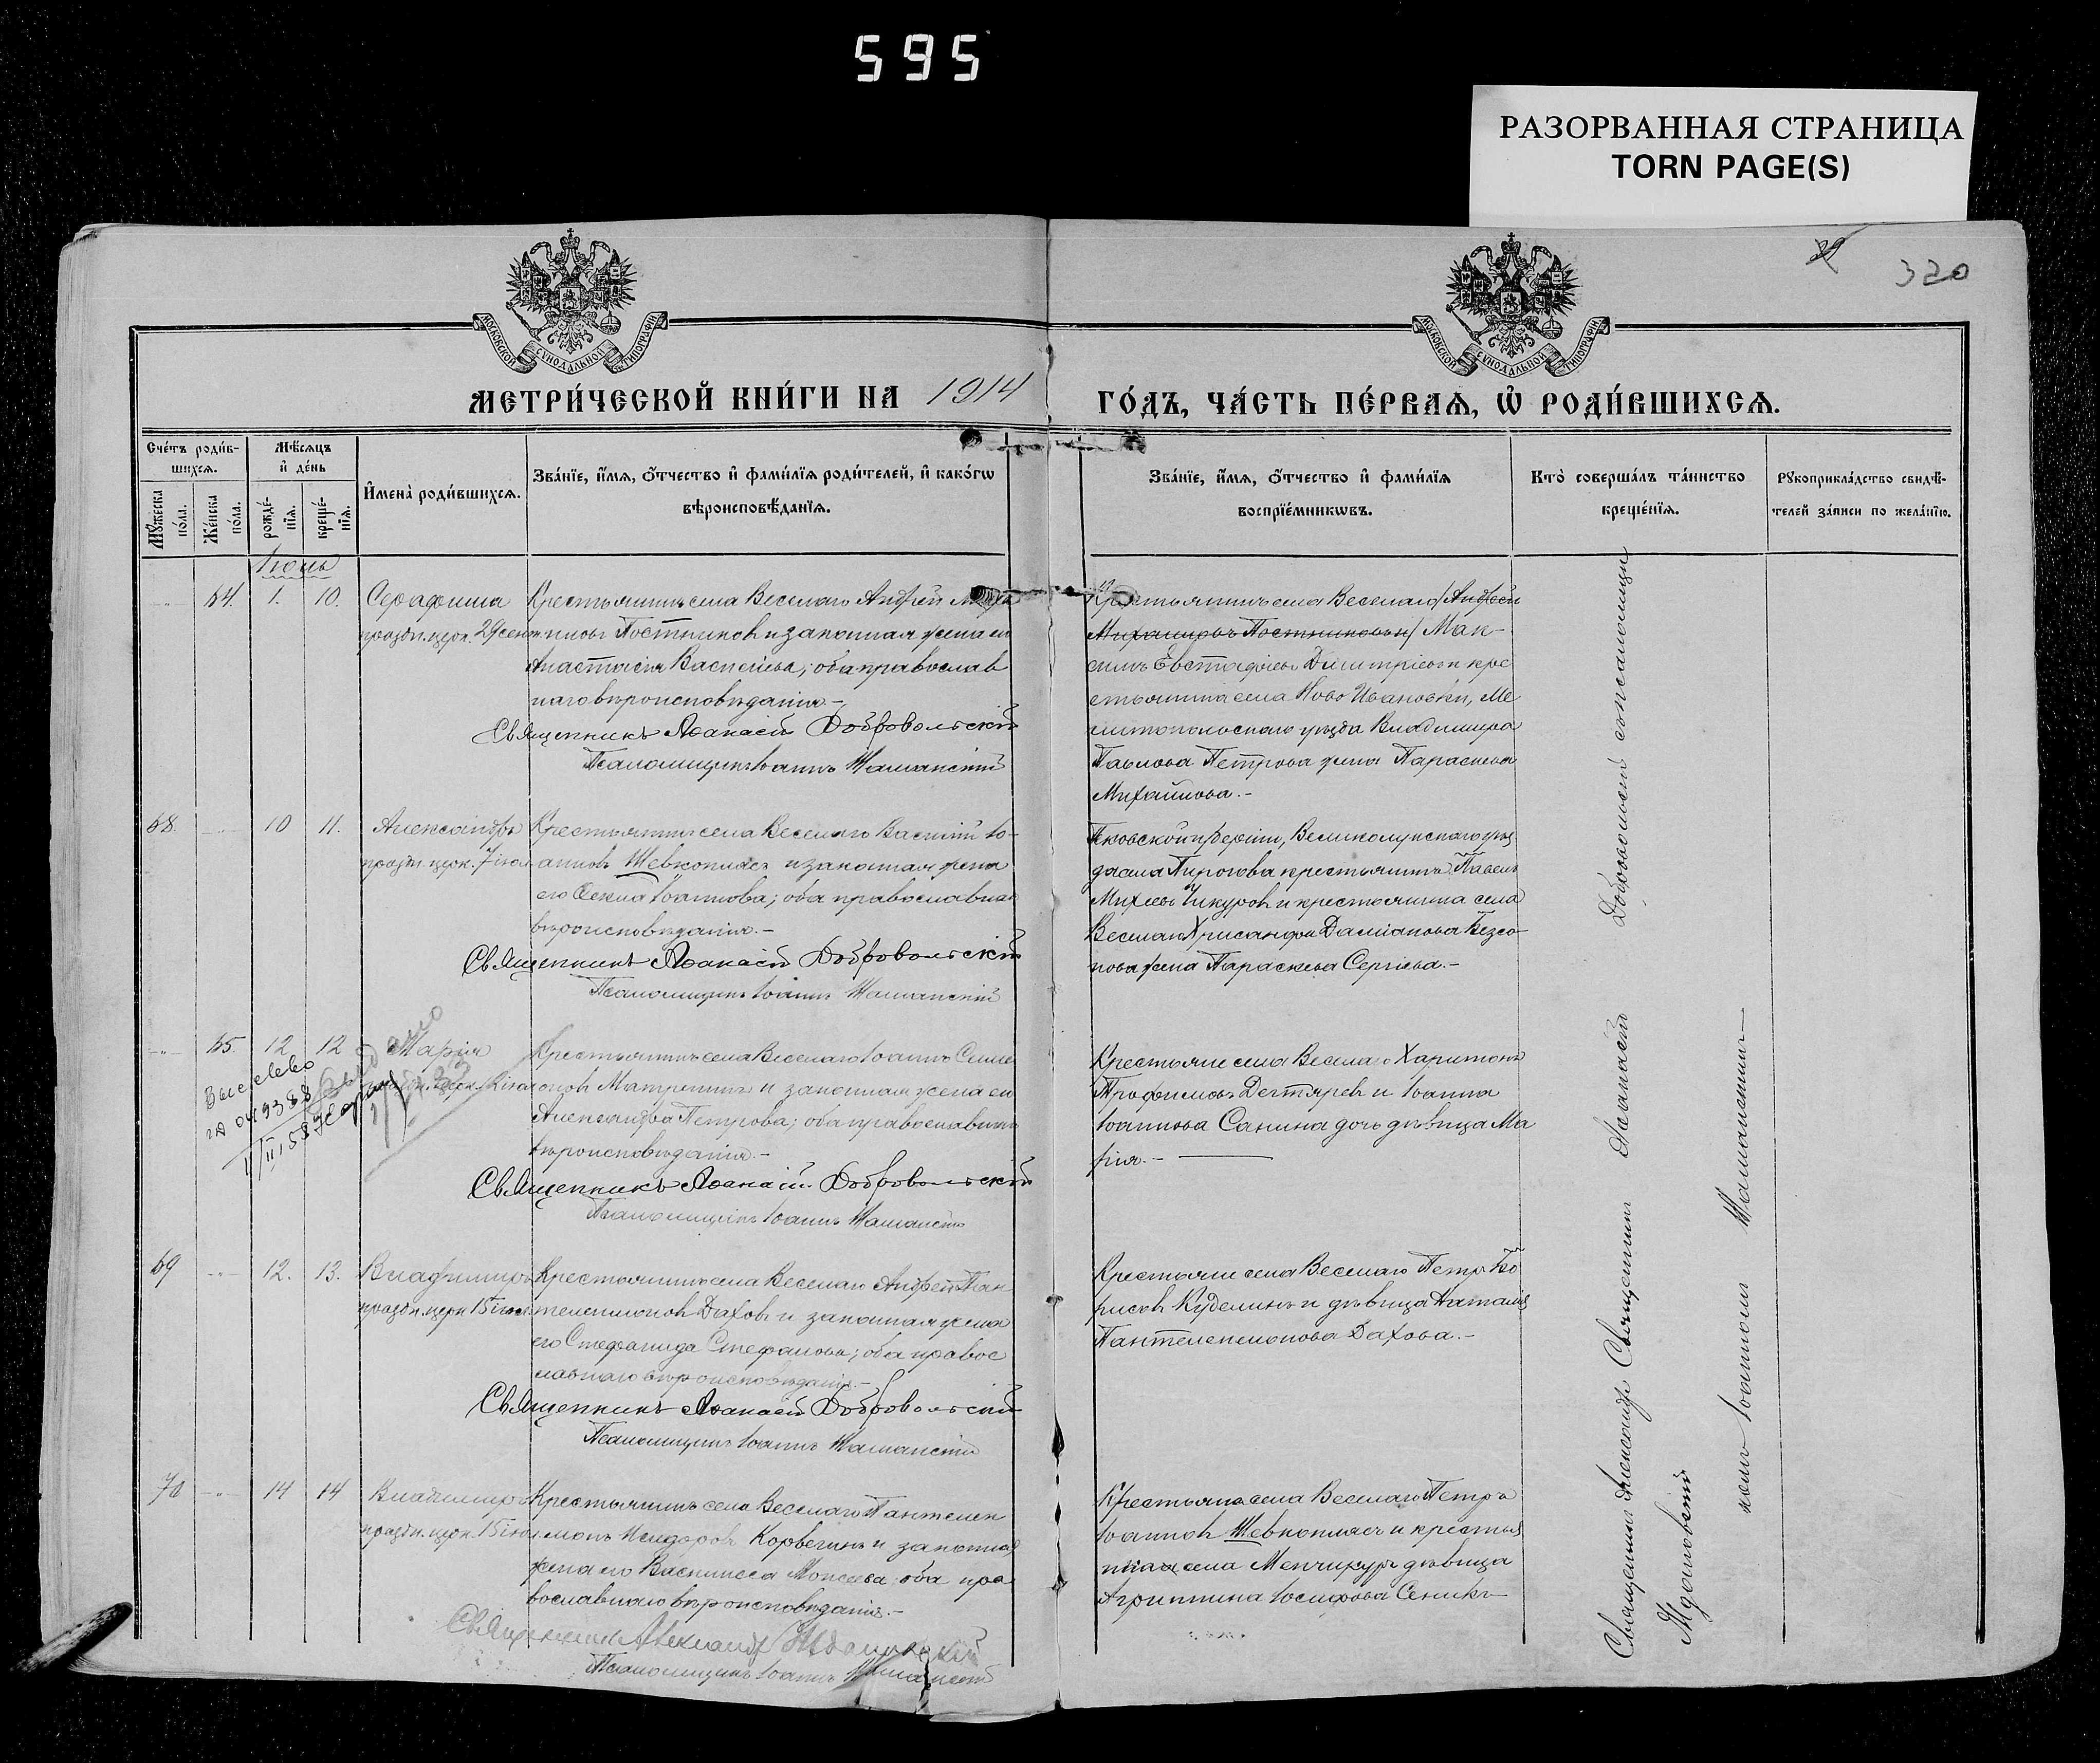 595
РАЗОРВАННАЯ СТРАНИЦА
TORN PAGE(S)
29
320
МОСКОВСКОЙ СѴНОДАЛЬНОЙ ТИПОГРАФІИ
МОСКОВСКОЙ СѴНОДАЛЬНОЙ ТИПОГРАФІИ
МЕТРИ́ЧЕСКОЙ КНИ́ГИ НА 1914
ГО́ДЪ, ЧА́СТЬ ПЕ́РВАѦ, Ѡ҆ РОДИ́ВШИХСѦ.
Сче́тъ роди́в-
шихсѧ.
Мѣ́сѧцъ
и҆ де́нь
Мꙋ́жеска по́ла.
Же́нска по́ла.
рожде́-нїѧ.
креще́-нїѧ.
И҆мена̀ роди́вшихсѧ.
Зва́нїе, и҆́мѧ, ѻ҆́тчество и҆ фами́лїѧ роди́телей, и҆ како́гѡ
вѣроисповѣ́данїѧ.
Зва́нїе, и҆́мѧ, ѻ҆́тчество и҆ фами́лїѧ
воспрїе́мникѡвъ.
Кто̀ соверша́лъ та́инство
креще́нїѧ.
Рꙋкоприкла́дство свидѣ́-
телей за́писи по жела́нїю.
Іюнь
64. 1. 10. Серафима
праздн. церк. 29
Крестьянинъ села Веселаго Андрей
Постниковъ и законная жена его
Анастасія Василіева; оба православ
наго вѣроисповѣданія.-
Священникъ Аѳанасій Добровольскій
Псаломщикъ Іоаннъ Шаманскій
Крестьянинъ села Веселаго /Андрей
Михаиловъ Постниковъ/ Мак-
симъ Евстафіевъ Димитріевъ и кре
стьянина села Ново Ивановки, Ме
литопольскаго уѣзда Владимира
Павлова Петрова жена Параскева
Михайлова.-
68. 10 11. Александръ
праздн. церк. 7
Крестьянинъ села Веселаго Василій Іо-
анновъ Шевкоплясъ и законная жена
его Ѳекла Іоаннова; оба православнаго
вѣроисповѣданія.-
Священникъ Аѳанасій Добровольскій
Псаломщикъ Іоаннъ Шаманскій
Псковской губерніи, Великолукскаго уѣз
да села Пирогова крестьянинъ Павелъ
Михеевъ Чикуровъ и крестьянина села
Веселаго Хрисанфа Даміанова Безсо-
нова жена Параскева Сергіева.-
65. 12 12 Марія
Крестьянинъ села Веселаго Іоаннъ Симе
оновъ Матренинъ и законная жена его
Александра Петрова; оба православнаго
вѣроисповѣданія.-
Священникъ Аѳанасій Добровольскій
Псаломщикъ Іоаннъ Шаманскій
Крестьяне села Веселаго Харитонъ
Трофимовъ Дегтяревъ и Іоанна
Іоаннова Санина дочь дѣвица Ма
рія.-
69 12. 13. Владимиръ
праздн. церк. 15 іюля
Крестьянинъ села Веселаго Андрей Пан
телеимоновъ Даховъ и законная жена
его Стефанида Стефанова; оба правос
лавнаго вѣроисповѣданія.-
Священникъ Аѳанасій Добровольскій
Псаломщикъ Іоаннъ Шаманскій
Крестьяне села Веселаго Петръ Бо
рисовъ Куделинъ и дѣвица Наталія
Пантелеимонова Дахова.-
70 14 14 Владимиръ
праздн. церк. 15 іюля
Крестьянинъ села Веселаго Пантелеи
монъ Исидоровъ Корвегинъ и законная
жена его Василисса Моисеева оба пра
вославнаго вѣроисповѣданія.-
Священникъ Александръ
Псаломщикъ Іоаннъ Шаманскій
Крестьяне села Веселаго Петръ
Іоанновъ Шевкоплясъ и крестья
села Менчикуръ дѣвица
Агриппина Іосифова Сеникъ
Священникъ Александръ Священникъ Аѳанасій Добровольскій съ псаломщи
комъ Іоанномъ Шаманскимъ